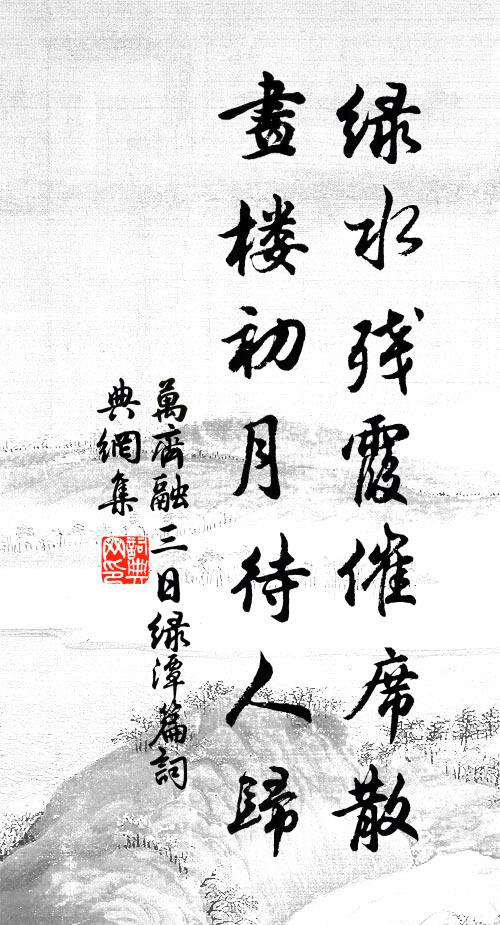 绿水残霞催席散
畫楼初月待人歸
萬齊融三日绿潭篇詞
典網集
詞典
网印